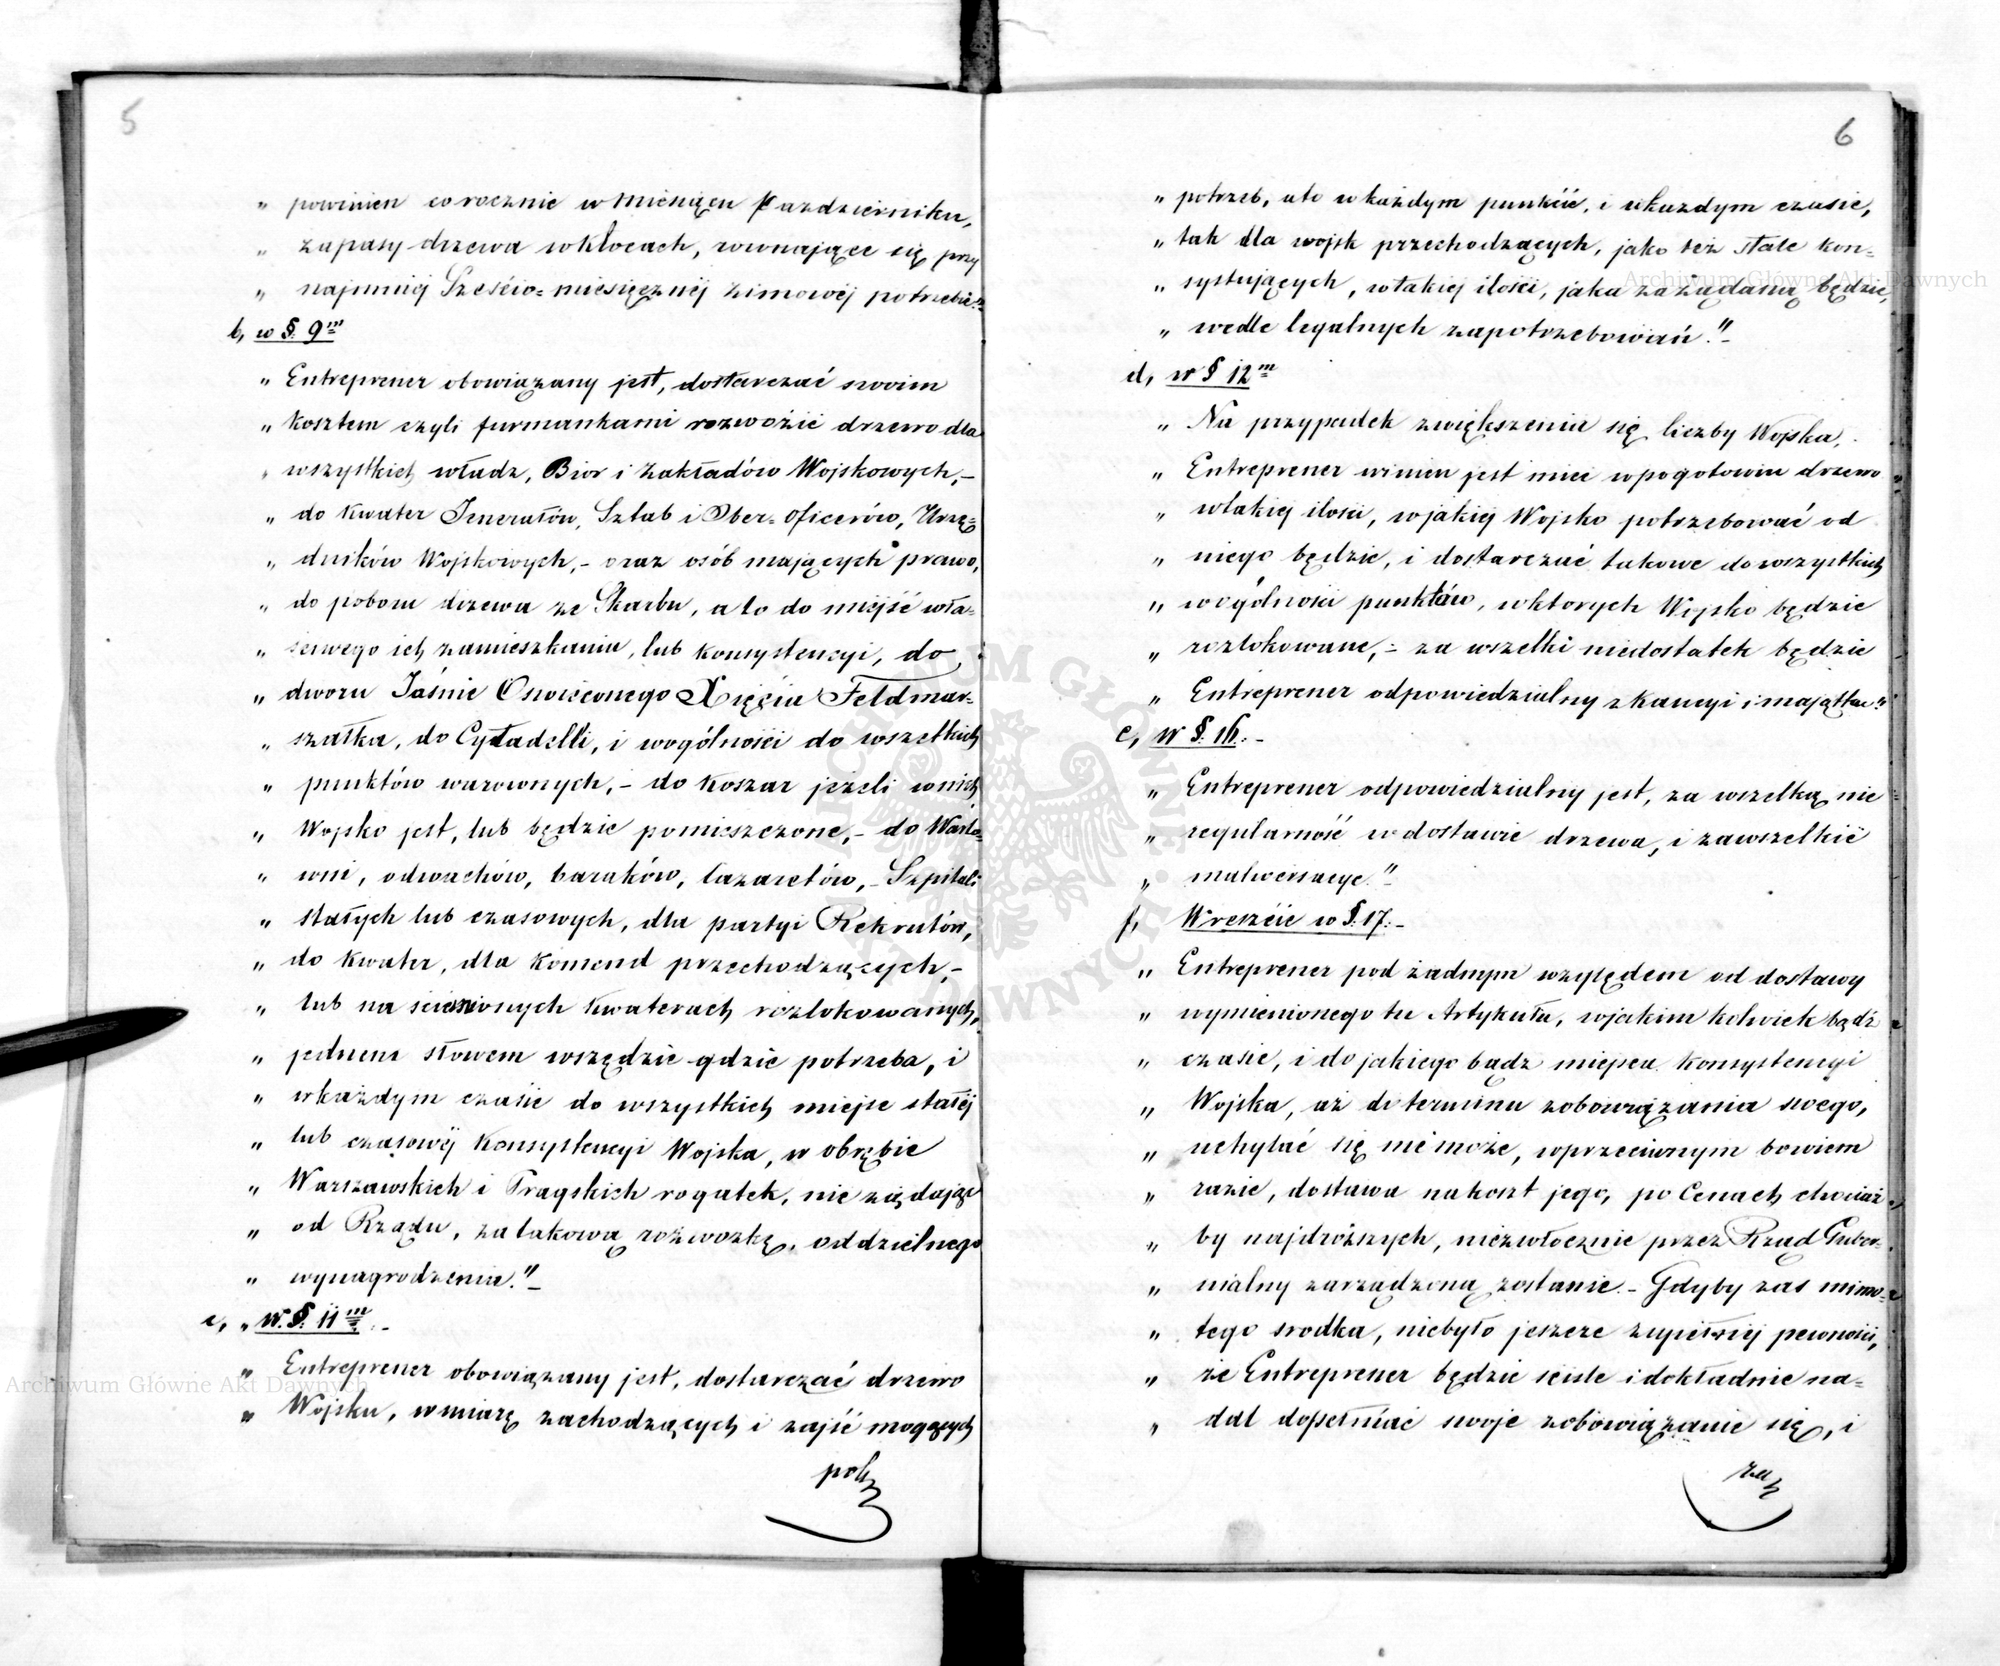 5
„ powinien corocznie w miesiącu Październiku,
„ zapasy drzewa w kłocach, rownające się przy
„ najmniéj Sześcio=miesięcznéj zimowéj potrzebie."
b, w §. 9m
„ Entreprener obowiązany jest, dostarczać swoim
„ kosztem czyli furmankami rozwozić drzewo dla
„ wszystkich władz, Bior i Zakładów Wojskowych,–
„ do kwater Jenerałów, Sztab i Ober=oficerów, Urzę=
„ dników Wojskowych,– oraz osób mających prawo,
„ do poboru drzewa ze Skarbu, a to do miejść wła=
„ sciwego ich zamieszkania, lub konsystencyi, do
„ dworu Jaśnie Oswieconego Xięcia Feldmar=
„ szałka, do Cytadelli, i wogólności do wszelkich
„ punktów warownych,– do koszar jeżeli w nich
„ Wojsko jest, lub będzie pomieszczone,– do Warto=
„ wni, odwachów, baraków, lazaretów,– Szpitali
„ stałych lub czasowych, dla partyi Rekrutów,
„ do kwater, dla komend przechodzących,–
„ lub na scieśnionych kwaterach rozlokowanych,
„ jednem słowem wszędzie gdzie potrzeba, i
„ w każdym czasie do wszystkich miejsc stałéj
„ lub czasowéj konsystencyi Wojska, w obrębie
„ Warszawskich i Pragskich rogatek, nie żądając
„ od Rządu, za takową rozwozkę, oddzielnego
„ wynagrodzenia."–
c, „ W. §. 11m.–
„ Entreprener obowiązany jest, dostarczać drzewo
„ Wojsku, w miarę zachodzących i zajść mogących
potrz
6
„ potrzeb, a to w każdym punkcie, i w każdym czasie,
„ tak dla wojsk przechodzących, jako też stale kon=
„ systujących, w takiej ilości, jaka zażądaną będzie,
„ wedle legalnych zapotrzebowań."–
d, w § 12m
„ Na przypadek zwiększenia się liczby Wojska,
„ Entreprener winien jest mieć w pogotowiu drzewo
„ w takiej ilości, w jakiej Wojsko potrzebować od
„ niego będzie, i dostarczać takowe do wszystkich
„ wogólności punktów, w ktorych Wojsko będzie
„ rozlokowane,– za wszelki niedostatek będzie
„ Entreprener odpowiedzialny z kaucyi i majątku."
e, w §. 16.–
„ Entreprener odpowiedzialny jest, za wszelką nie
„ regularność w dostawie drzewa, i za wszelkie
„ malwersacye."–
f, Wreszcie w §. 17.–
„ Entreprener pod żadnym względem od dostawy
„ wymienionego tu Artykułu, w jakim kolwiek bądź
„ czasie, i do jakiego bądz miejsca konsystencyi
„ Wojska, aż do terminu zobowiązania swego,
„ uchylać się nie może, w przeciwnym bowiem
„ razie, dostawa na koszt jego, po Cenach chociaż
„ by najdróższych, niezwłocznie przez Rząd Guber=
„ nialny zarządzoną zostanie.– Gdyby zas mimo
„ tego srodka, niebyło jeszcze zupełnéj pewności,
„ że Entreprener będzie sciśle i dokładnie na=
„ dal dopełniać swoje zobowiązanie się, i
za
Archiwum Główne Akt Dawnych
Archiwum Główne Akt Dawnych
ARCHIWUM GŁÓWNE AKT DAWNYCH